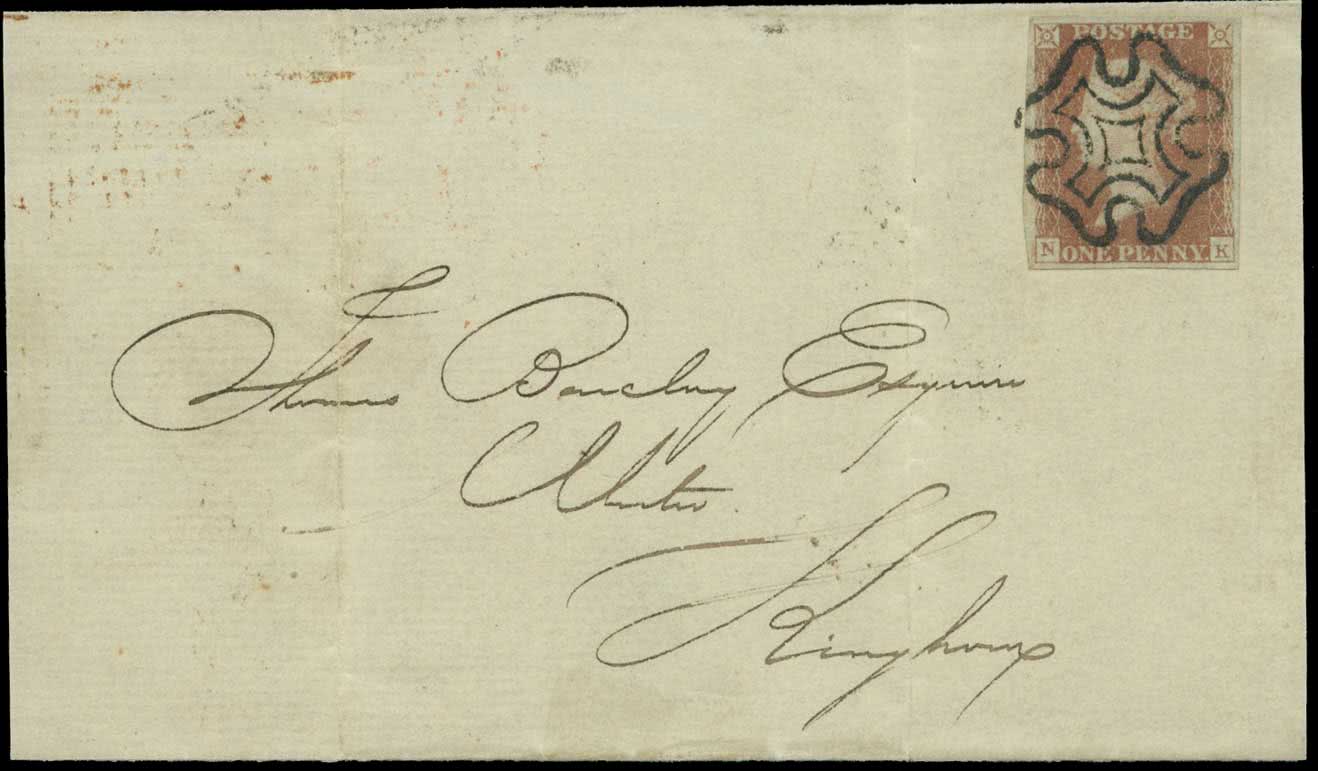 POSTAGE
N ONE PENNY K
Thomas Barclay Esquire
Kinghorn